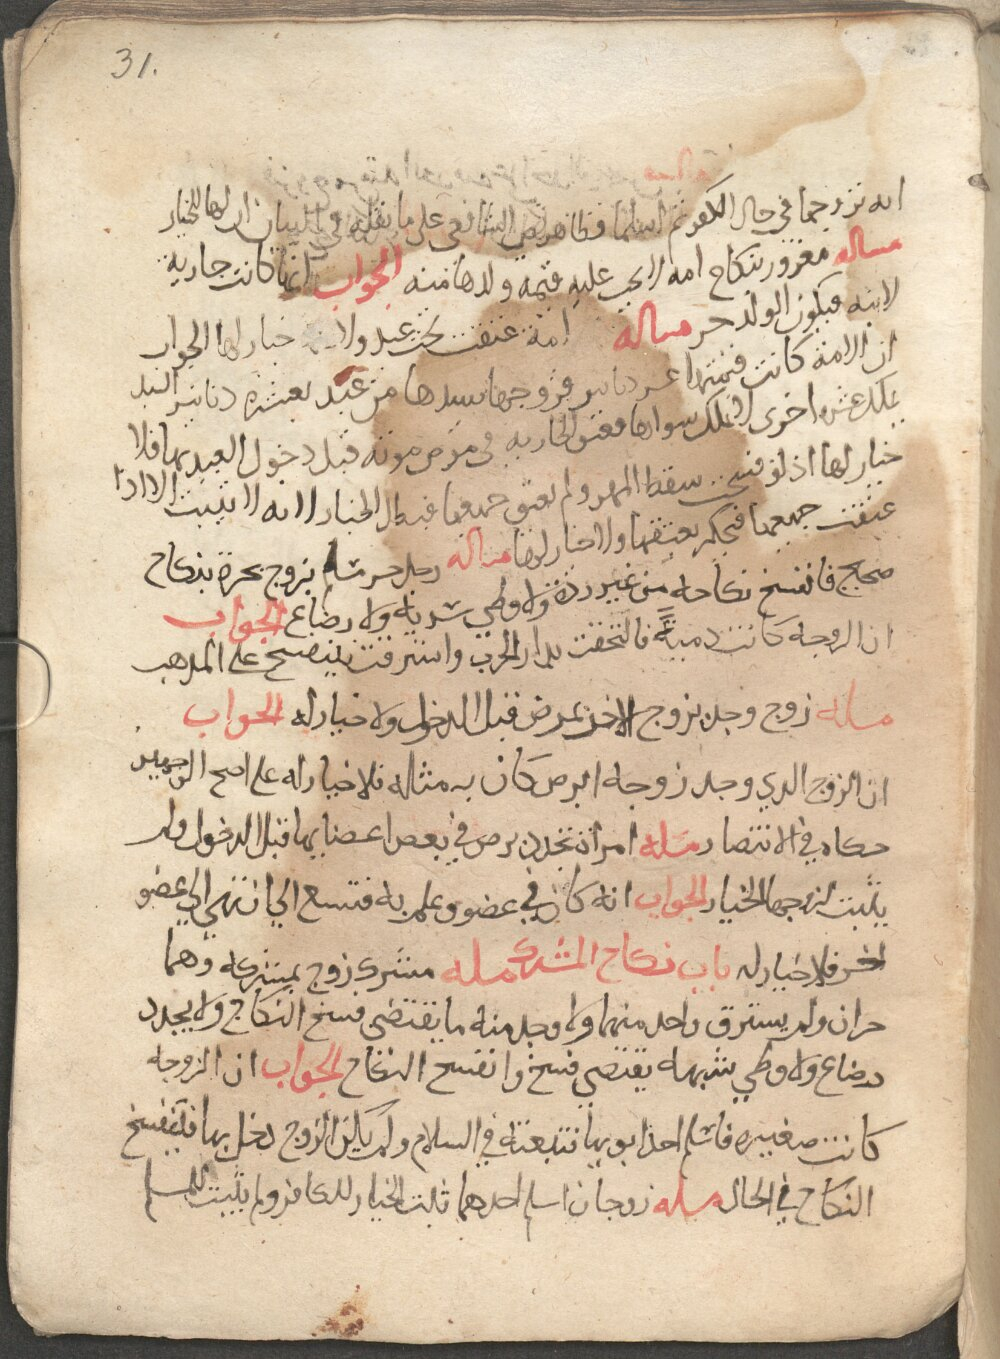 31.
انه تزوجها في حال الكفر ثم اسلما فظاهر نص الشافعي على ما نقله في البيان ان لها الخيار
مساله مغرور بنكاح امه لا يجب عليه قيمه ولدها منه الجواب انها كانت جاريه
لابنه فيكون الولد حر مساله امة عتقت تحت عبد ولا خيار لها الجواب
ان الامة كانت قيمتها عشر دنانير فزوجها سيدها من عبد بعشره دنانير السيد
يملك عشره اخرى لا يملك سواها فعتق الجاريه في مرض موته قبل دخول العبد بها فلا
خيار لها اذ لو فسخت سقط المهر ولم تعتق جميعها فيبطل الخيار لانه لا يثبت الا اذا
عتقت جميعها فيحكم بعتقها ولا خيار لها مساله رجل حر مسلم تزوج بحرة بنكاح
صحيح فانفسخ نكاحه من غير ردة ولا وطي شبهة ولا رضاع الجواب
ان الزوجه كانت ذمية فالتحقت بدار الحرب واسترقت ينفسخ على المذهب
مسله زوج وجد بزوج الاخر برص قبل الدخول ولا خيار له الجواب
ان الزوج الذي وجد زوجه ابرص كان به مثاله فلا خيار له على اصح الوجهين
حكاه في الانتصار مسله امراة تجدد برص في بعض اعضايها قبل الدخول ولم
يثبت لزوجها الخيار الجواب انه كان في عضو وعلم به فتسع الي ان انتهى الي عضو
اخر فلا خيار له باب نكاح المشرك مسله مشرك زوج بمشركه وهما
حران ولم يسترق واحد منهما ولا وجد منه ما يقتضي فسخ النكاح ولا يجدد
رضاع ولا وطي شبهه يقتضي فسخ وانفسخ النكاح الجواب ان الزوجه
كانت صغيره فاسلم احد ابويها فتبعته في السلام ولم يكن الزوج دخل بها فينفسخ
النكاح في الحال مسله زوجان اسلم احدهما ثبت الخيار للكافر ولم يثبت للمسلم